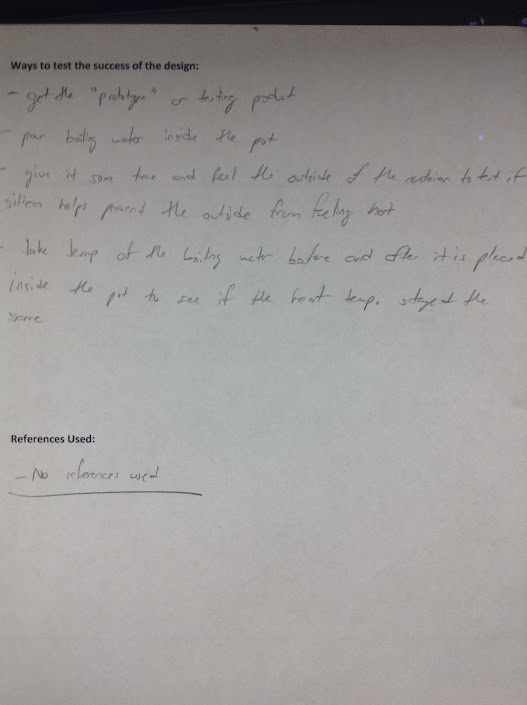 Ways to test the success of the design:
- get the "prototype" or testing product
- pour boiling water inside the pot
- give it some time and feel the outside of the to test if
silicon helps prevent the outside from feeling hot
- take temp of the boiling water before and after it is placed
inside the pot to see if the heat temp. stayed the
same
References Used:
- No references used